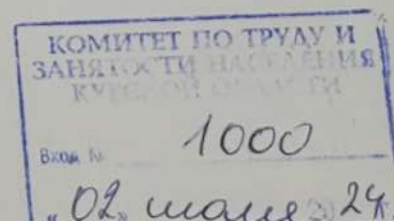 КОМИТЕТ ПО ТРУДУ И
ЗАНЯТОСТИ НАСЕЛЕНИЯ
КУРСКОЙ ОБЛАСТИ
Вход. № 1000
"02" июля 2024г.